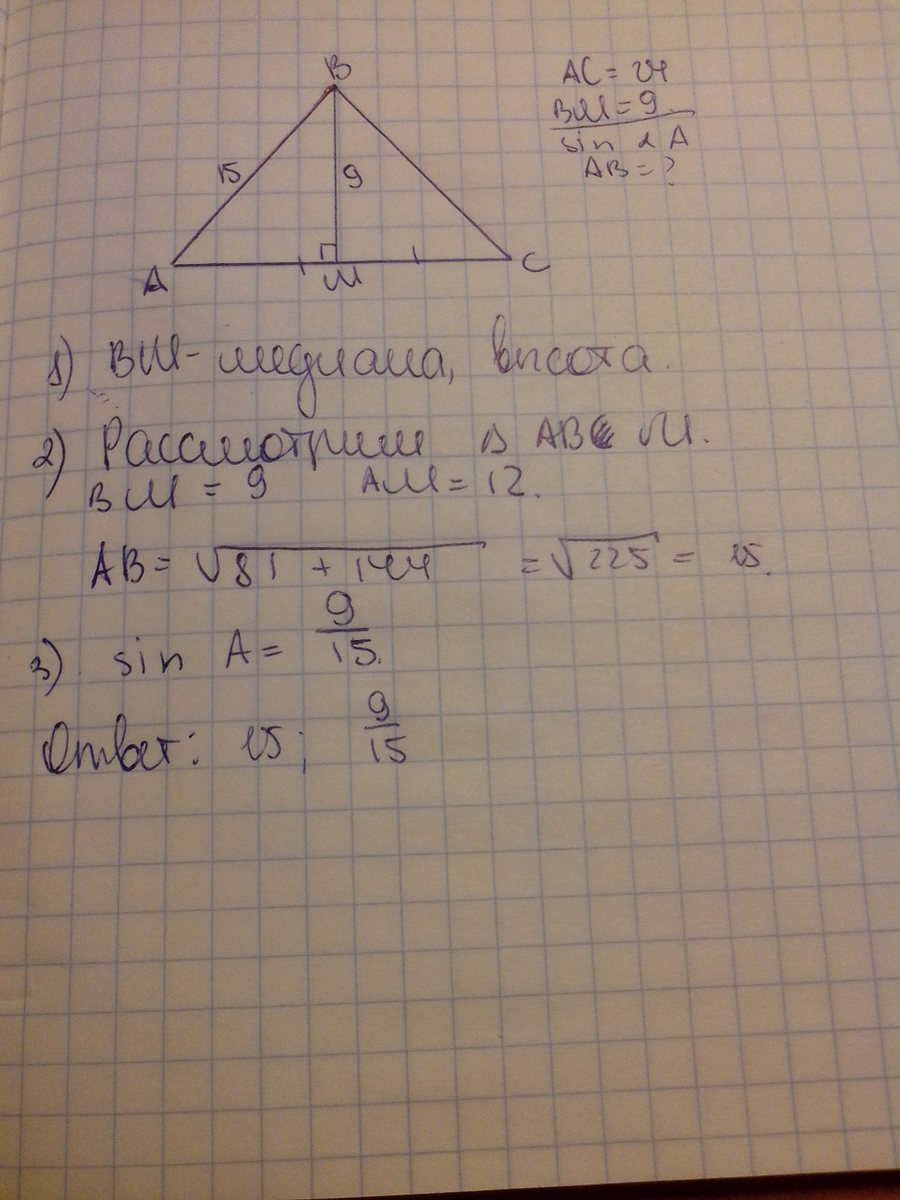 B
AC = 24
BM = 9.
sin ∠ A
AB = ?
15
9
A
M
C
1) BM - медиана, высота.
2) Рассмотрим Δ ABM.
BM = 9 AM = 12.
AB = √81 + 144 = √225 = 15.
3) sin A = 9/15.
Ответ: 15; 9/15